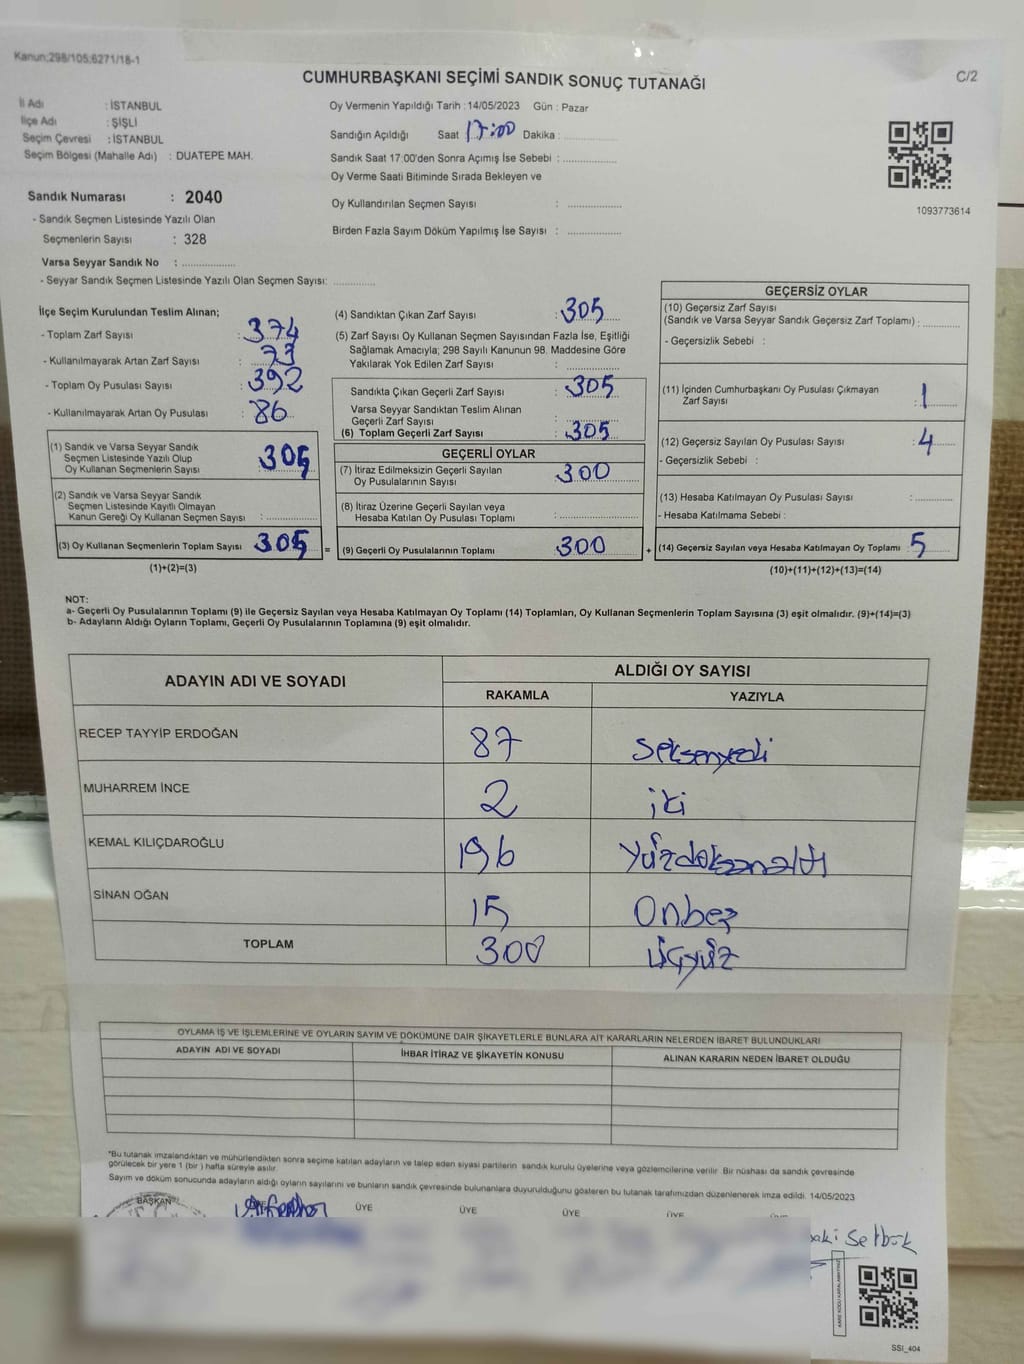 Kanun:298/105:6271/18-1
CUMHURBAŞKANI SEÇİMİ SANDIK SONUÇ TUTANAĞI
C/2
İl Adı : İSTANBUL
İlçe Adı : ŞİŞLİ
Seçim Çevresi : İSTANBUL
Seçim Bölgesi (Mahalle Adı) : DUATEPE MAH.
Sandık Numarası : 2040
- Sandık Seçmen Listesinde Yazılı Olan
Seçmenlerin Sayısı : 328
Varsa Seyyar Sandık No : ..............
- Seyyar Sandık Seçmen Listesinde Yazılı Olan Seçmen Sayısı: ............
Oy Vermenin Yapıldığı Tarih : 14/05/2023 Gün : Pazar
Sandığın Açıldığı Saat 17:00 Dakika : ..............
Sandık Saat 17:00'den Sonra Açımış İse Sebebi : ..............
Oy Verme Saati Bitiminde Sırada Bekleyen ve
Oy Kullandırılan Seçmen Sayısı : ..............
Birden Fazla Sayım Döküm Yapılmış İse Sayısı : ..............
1093773614
İlçe Seçim Kurulundan Teslim Alınan;
- Toplam Zarf Sayısı : 374
- Kullanılmayarak Artan Zarf Sayısı : 73
- Toplam Oy Pusulası Sayısı : 392
- Kullanılmayarak Artan Oy Pusulası : 86
(1) Sandık ve Varsa Seyyar Sandık
Seçmen Listesinde Yazılı Olup
Oy Kullanan Seçmenlerin Sayısı : 305
(2) Sandık ve Varsa Seyyar Sandık
Seçmen Listesinde Kayıtlı Olmayan
Kanun Gereği Oy Kullanan Seçmen Sayısı : ..............
(3) Oy Kullanan Seçmenlerin Toplam Sayısı : 305
(1)+(2)=(3)
(4) Sandıktan Çıkan Zarf Sayısı : 305
(5) Zarf Sayısı Oy Kullanan Seçmen Sayısından Fazla İse, Eşitliği
Sağlamak Amacıyla; 298 Sayılı Kanunun 98. Maddesine Göre
Yakılarak Yok Edilen Zarf Sayısı : ..............
Sandıkta Çıkan Geçerli Zarf Sayısı : 305
Varsa Seyyar Sandıktan Teslim Alınan
Geçerli Zarf Sayısı : ..............
(6) Toplam Geçerli Zarf Sayısı : 305
GEÇERLİ OYLAR
(7) İtiraz Edilmeksizin Geçerli Sayılan
Oy Pusulalarının Sayısı : 300
(8) İtiraz Üzerine Geçerli Sayılan veya
Hesaba Katılan Oy Pusulası Toplamı : ..............
= (9) Geçerli Oy Pusulalarının Toplamı 300
GEÇERSİZ OYLAR
(10) Geçersiz Zarf Sayısı
(Sandık ve Varsa Seyyar Sandık Geçersiz Zarf Toplamı) : ..........
- Geçersizlik Sebebi :
(11) İçinden Cumhurbaşkanı Oy Pusulası Çıkmayan
Zarf Sayısı : 1
(12) Geçersiz Sayılan Oy Pusulası Sayısı : 4
- Geçersizlik Sebebi :
(13) Hesaba Katılmayan Oy Pusulası Sayısı : ..........
- Hesaba Katılmama Sebebi :
+ (14) Geçersiz Sayılan veya Hesaba Katılmayan Oy Toplamı 5
(10)+(11)+(12)+(13)=(14)
NOT:
a- Geçerli Oy Pusulalarının Toplamı (9) ile Geçersiz Sayılan veya Hesaba Katılmayan Oy Toplamı (14) Toplamları, Oy Kullanan Seçmenlerin Toplam Sayısına (3) eşit olmalıdır. (9)+(14)=(3)
b- Adayların Aldığı Oyların Toplamı, Geçerli Oy Pusulalarının Toplamına (9) eşit olmalıdır.
ADAYIN ADI VE SOYADI
ALDIĞI OY SAYISI
RAKAMLA YAZIYLA
RECEP TAYYİP ERDOĞAN 87 seksenyedi
MUHARREM İNCE 2 iki
KEMAL KILIÇDAROĞLU 196 yüzdoksanaltı
SİNAN OĞAN 15 Onbeş
TOPLAM 300 üçyüz
OYLAMA İŞ VE İŞLEMLERİNE VE OYLARIN SAYIM VE DÖKÜMÜNE DAİR ŞİKAYETLERLE BUNLARA AİT KARARLARIN NELERDEN İBARET BULUNDUKLARI
ADAYIN ADI VE SOYADI İHBAR İTİRAZ VE ŞİKAYETİN KONUSU ALINAN KARARIN NEDEN İBARET OLDUĞU
"Bu tutanak imzalandıktan ve mühürlendikten sonra seçime katılan adayların ve talep eden siyasi partilerin sandık kurulu üyelerine veya gözlemcilerine verilir. Bir nüshası da sandık çevresinde
görülecek bir yere 1 (bir ) hafta süreyle asılır.
Sayım ve döküm sonucunda adayların aldığı oyların sayılarını ve bunların sandık çevresinde bulunanlara duyurulduğunu gösteren bu tutanak tarafımızdan düzenlenerek imza edildi. 14/05/2023
BAŞKAN ÜYE ÜYE ÜYE ÜYE
SSI_404